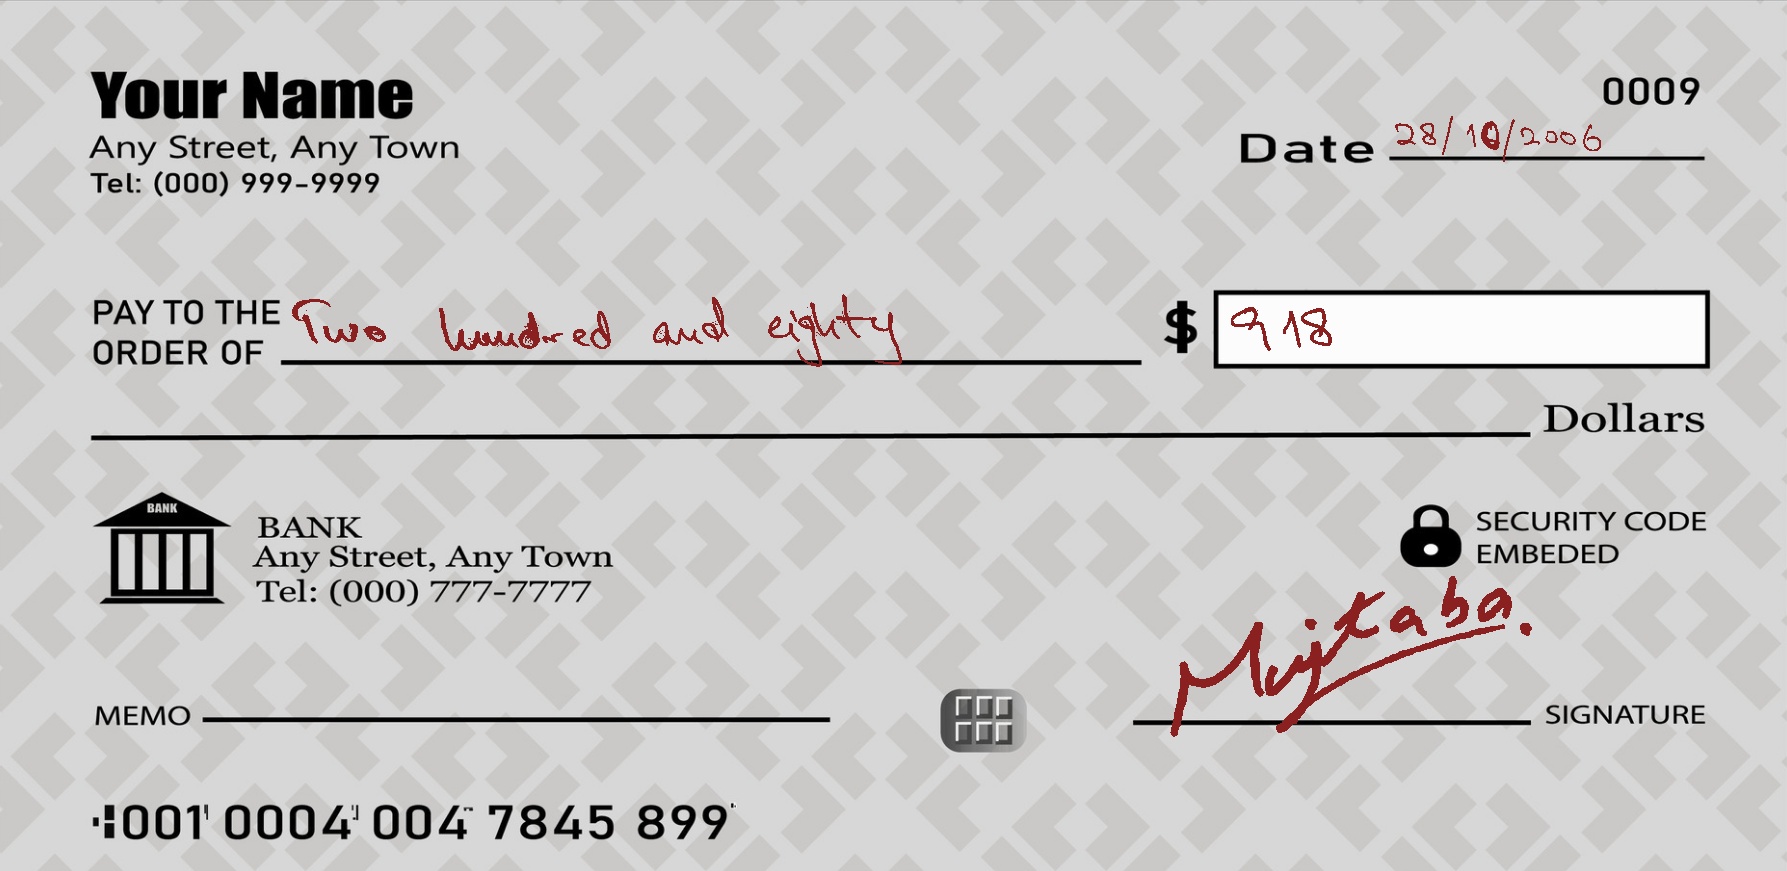 Your Name
Any Street, Any Town
Tel: (000) 999-9999
0009
Date 28/10/2006
PAY TO THE
ORDER OF Two hundred and eighty $ 918
Dollars
BANK
BANK
Any Street, Any Town
Tel: (000) 777-7777
SECURITY CODE
EMBEDED
MEMO
Mujtaba.
SIGNATURE
001 0004 004 7845 899